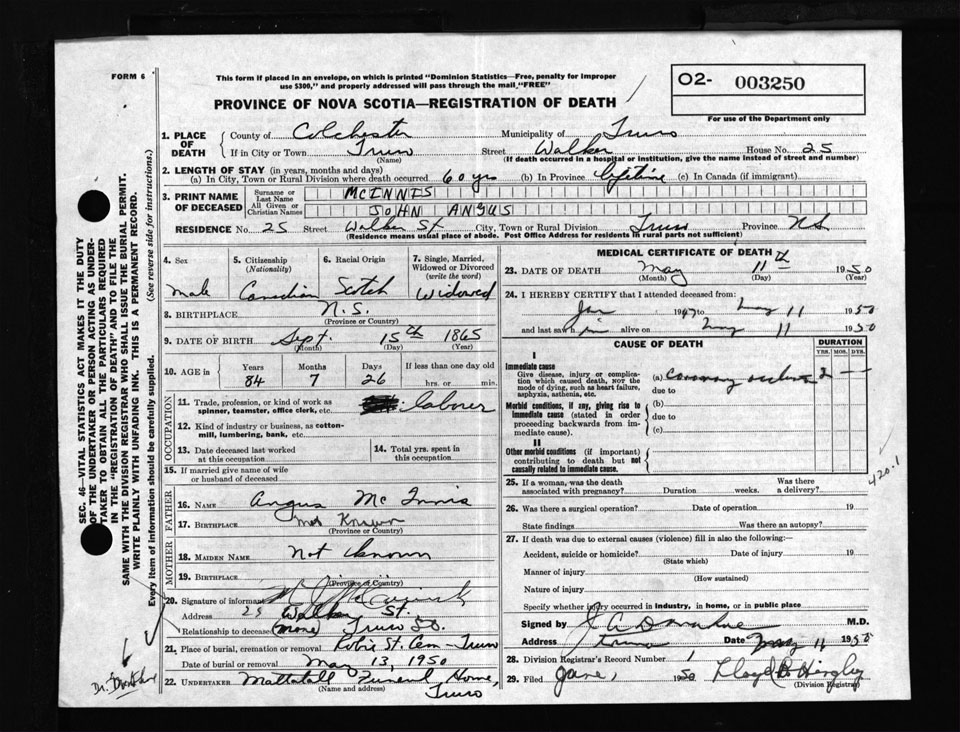 FORM 6
This form if placed in an envelope, on which is printed "Dominion Statistics—Free, penalty for improper
use $300," and properly addressed will pass through the mail "FREE"
O2- 003250
PROVINCE OF NOVA SCOTIA—REGISTRATION OF DEATH
For use of the Department only
SEC. 46—VITAL STATISTICS ACT MAKES IT THE DUTY
OF THE UNDERTAKER OR PERSON ACTING AS UNDER-
TAKER TO OBTAIN ALL THE PARTICULARS REQUIRED
IN THE "REGISTRATION OF DEATH" AND TO FILE THE
SAME WITH THE DIVISION REGISTRAR WHO SHALL ISSUE THE BURIAL PERMIT.
WRITE PLAINLY WITH UNFADING INK. THIS IS A PERMANENT RECORD.
Every item of information should be carefully supplied. (See reverse side for instructions.)
1. PLACE OF DEATH County of Colchester Municipality of Truro
If in City or Town Truro Street Walker House No. 25
(Name) (If death occurred in a hospital or institution, give the name instead of street and number)
2. LENGTH OF STAY (in years, months and days)
(a) In City, Town or Rural Division where death occurred 60 yrs (b) In Province lifetime (c) In Canada (if immigrant)
3. PRINT NAME OF DECEASED Surname or Last Name McINNIS
All Given or Christian Names JOHN ANGUS
RESIDENCE No. 25 Street Walker St. City, Town or Rural Division Truro Province N.S.
(Residence means usual place of abode. Post Office Address for residents in rural parts not sufficient)
4. Sex
Male
5. Citizenship
(Nationality)
Canadian
6. Racial Origin
Scotch
7. Single, Married,
Widowed or Divorced
(write the word)
Widowed
8. BIRTHPLACE N.S.
(Province or Country)
9. DATE OF BIRTH Sept. 15th 1865
(Month) (Day) (Year)
10. AGE in Years Months Days If less than one day old
84 7 26 hrs. or min.
OCCUPATION
11. Trade, profession, or kind of work as
spinner, teamster, office clerk, etc. laborer
12. Kind of industry or business, as cotton-
mill, lumbering, bank, etc.
13. Date deceased last worked
at this occupation
14. Total yrs. spent in
this occupation
15. If married give name of wife
or husband of deceased
FATHER
16. Name Angus Mc Innis
17. Birthplace Not Known
(Province or Country)
MOTHER
18. Maiden Name Not known
19. Birthplace
(Province or Country)
20. Signature of informant
Address 25 Walker St.
Relationship to deceased (none) Truro
21. Place of burial, cremation or removal Robie St. Cem - Truro
Date of burial or removal May 13, 1950
22. Undertaker Mattatall Funeral Home,
(Name and address) Truro
MEDICAL CERTIFICATE OF DEATH
23. DATE OF DEATH May 11th 1950
(Month) (Day) (Year)
24. I HEREBY CERTIFY that I attended deceased from:
Jan 1947 to May 11 1950
and last saw him alive on May 11 1950
CAUSE OF DEATH DURATION
YRS. MOS. DYS.
I
Immediate cause
Give disease, injury or complica-
tion which caused death, NOT the
mode of dying, such as heart failure,
asphyxia, asthenia, etc.
(a) coronary occlusion 2 — —
due to
Morbid conditions, if any, giving rise to
immediate cause (stated in order
proceeding backwards from im-
mediate cause).
(b)
due to
(c)
II
Other morbid conditions (if important)
contributing to death but not
causally related to immediate cause.
420.1
25. If a woman, was the death
associated with pregnancy? Duration weeks. Was there a delivery?
26. Was there a surgical operation? Date of operation 19
State findings Was there an autopsy?
27. If death was due to external causes (violence) fill in also the following:—
Accident, suicide or homicide? Date of injury 19
(State which)
Manner of injury
(How sustained)
Nature of injury
Specify whether injury occurred in industry, in home, or in public place
Signed by J A Donahue M.D.
Address Truro Date May 11 1950
28. Division Registrar's Record Number 1
29. Filed June, 1950 Lloyd B Hingley
(Division Registrar)